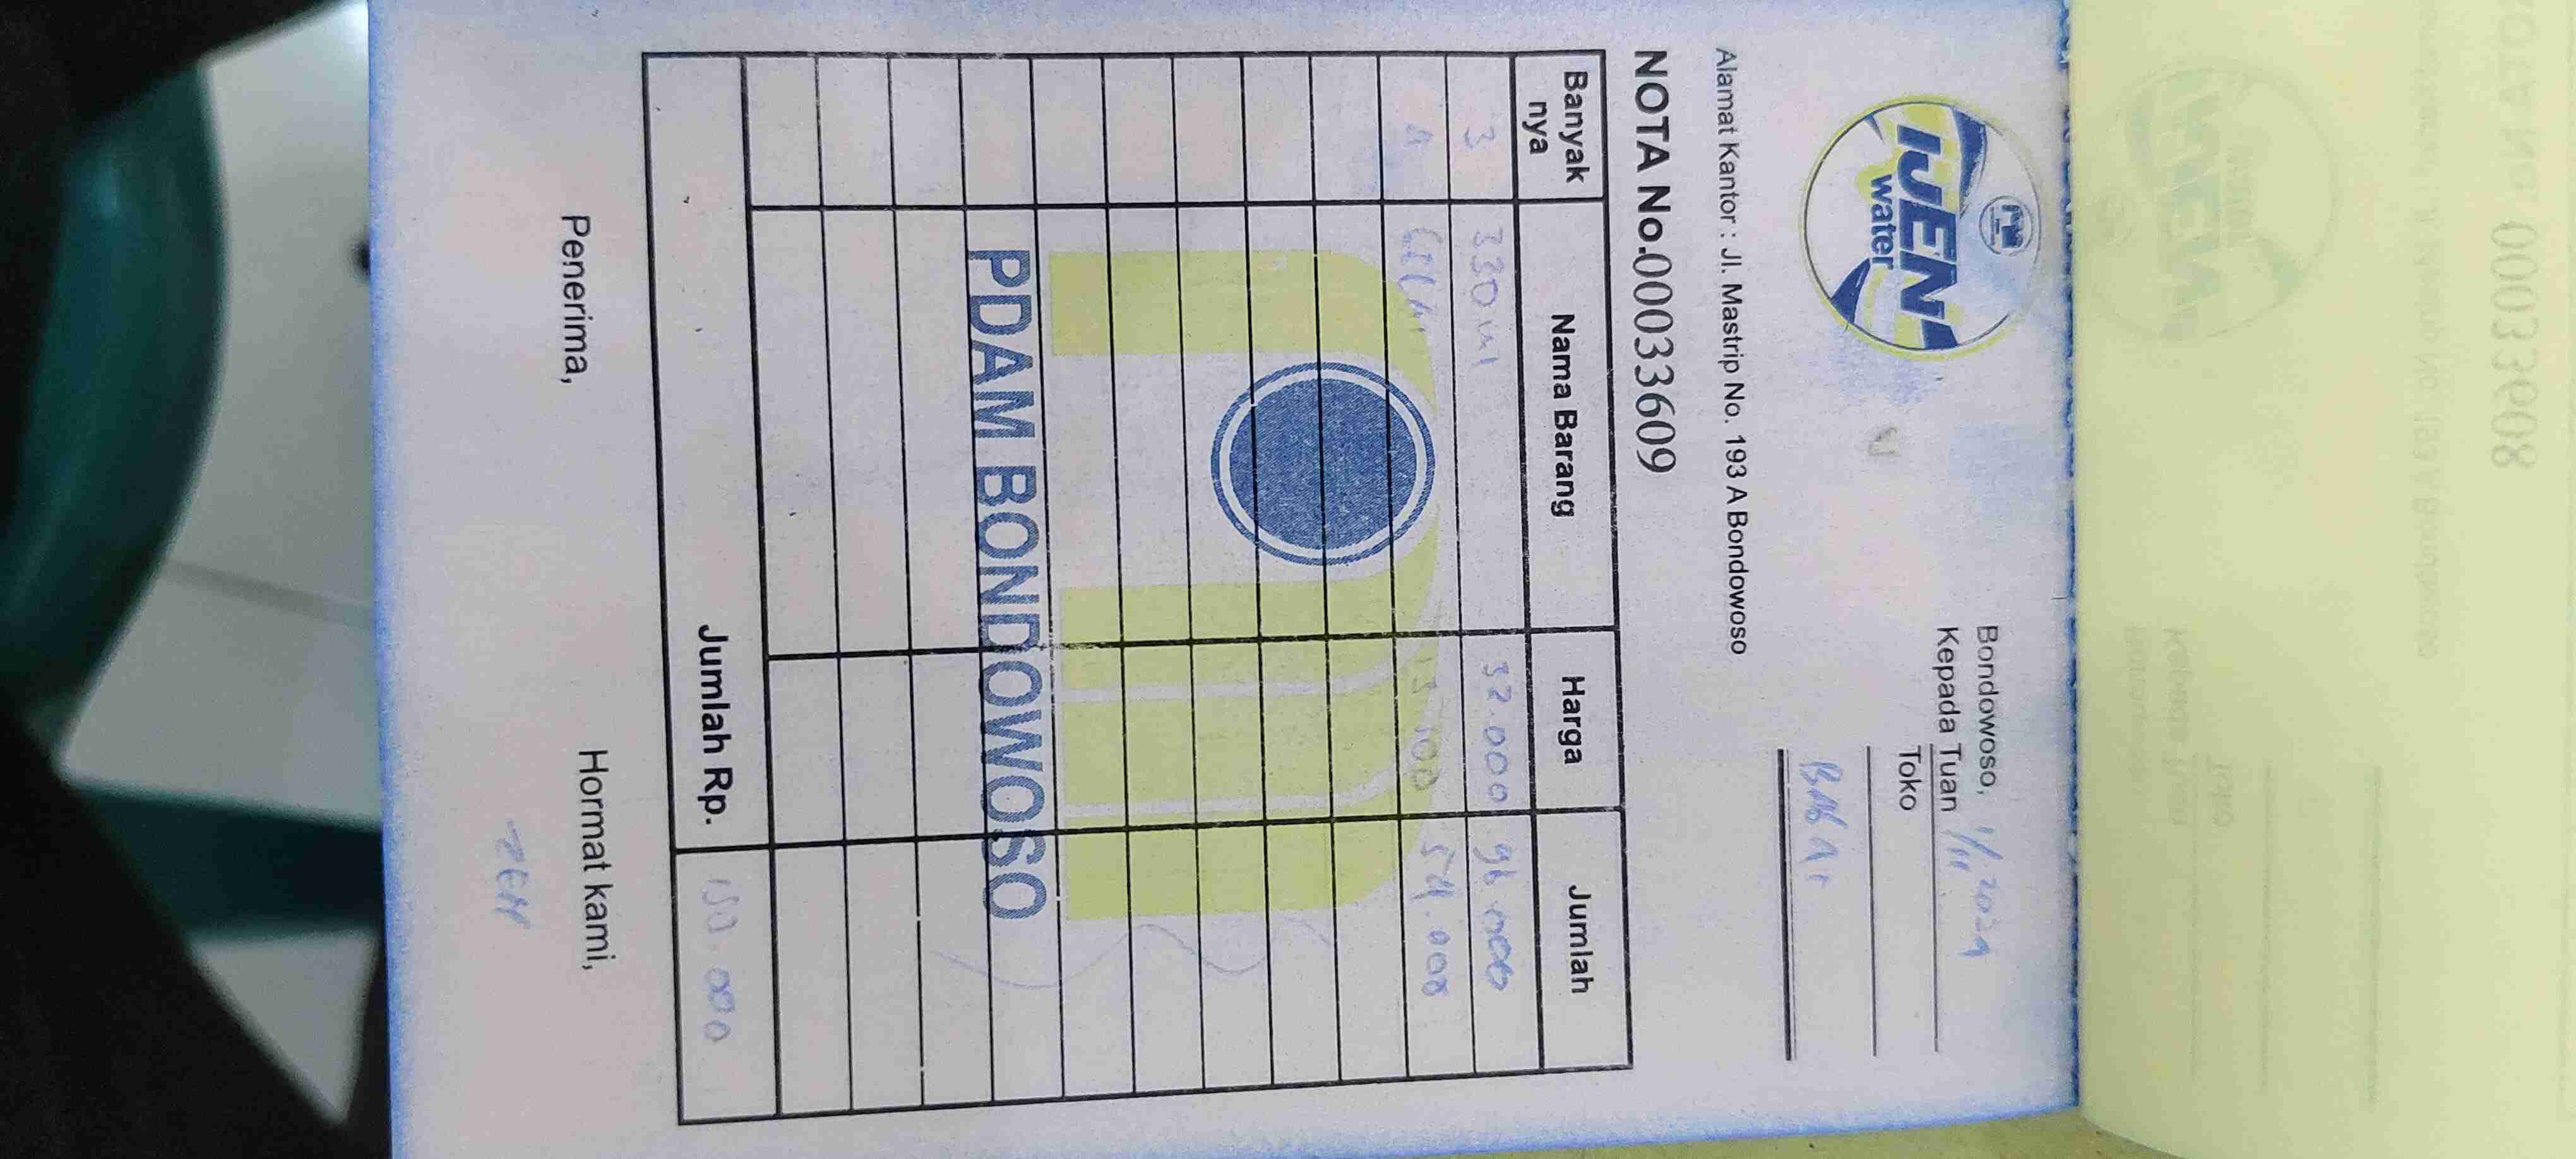 IJEN
water
Bondowoso, 1/11 2024
Kepada Tuan
Toko
Alamat Kantor : Jl. Mastrip No. 193 A Bondowoso
NOTA No.00033609
Banyak nya Nama Barang Harga Jumlah
3 330 ml 32.000 96.000
4 54.000
PDAM BONDOWOSO
Jumlah Rp. 150.000
Penerima, Hormat kami,
00033608